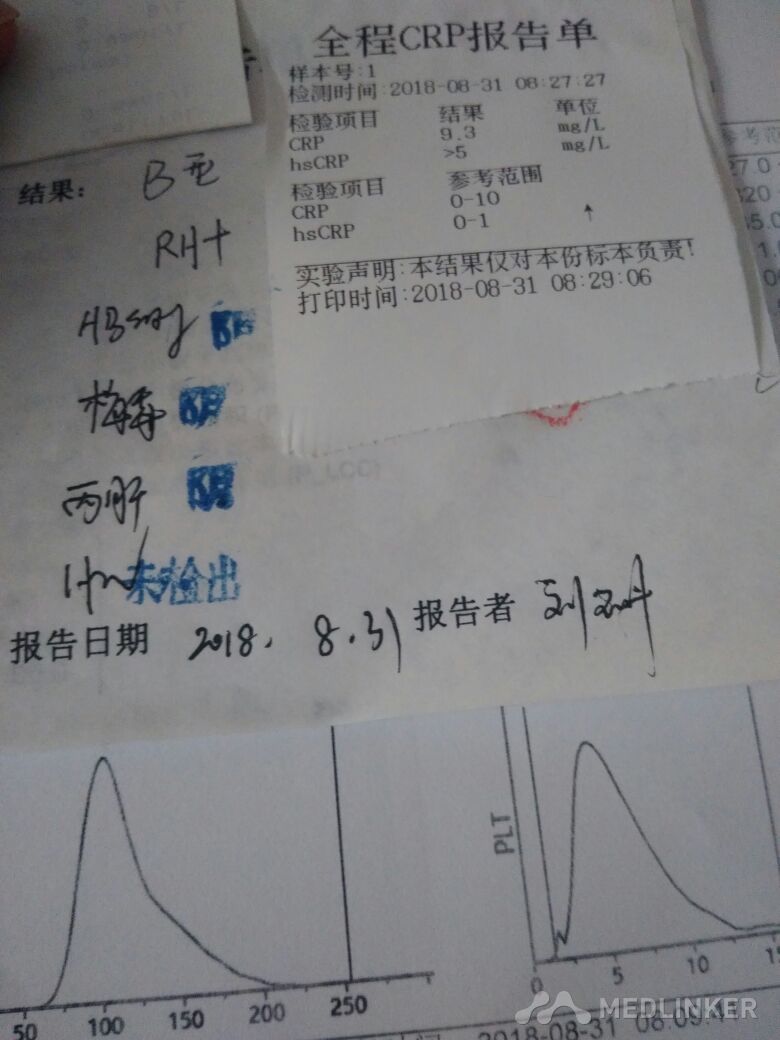 全程CRP报告单
样本号:1
检测时间:2018-08-31 08:27:27
检验项目 结果 单位
CRP 9.3 mg/L
hsCRP >5 mg/L
检验项目 参考范围
CRP 0-10
hsCRP 0-1 ↑
实验声明:本结果仅对本份标本负责!
打印时间:2018-08-31 08:29:06
结果: B型
RH+
梅毒
丙肝
未检出
报告日期 2018. 8.31 报告者
PLT
50 100 150 200 250
0 5 10
MEDLINKER
2018-08-31